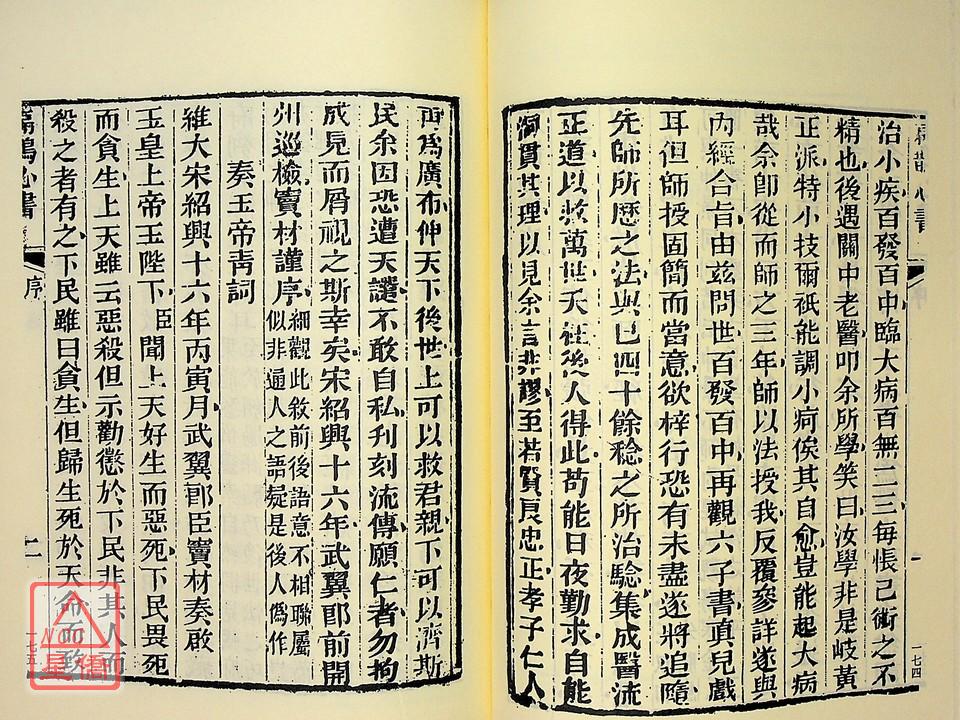 扁鵲心書
治小疾百發百中臨大病百無二三每悵己術之不
精也後遇關中老醫叩余所學笑曰汝學非是岐黃
正派特小技爾祇能調小疴俟其自愈豈能起大病
哉余即從而師之三年師以法授我反覆參詳遂與
內經合旨由茲問世百發百中再觀六子書真兒戲
耳但師授固簡而當意欲梓行恐有未盡遂將追隨
先師所歷之法與己四十餘稔之所治驗集成醫流
正道以救萬世夭枉後人得此苟能日夜勤求自能
洞貫其理以見余言非謬至若賢良忠正孝子仁人
一
一七四
再為廣布俾天下後世上可以救君親下可以濟斯
民余因恐遭天譴不敢自私刋刻流傳願仁者勿拘
成見而屑視之斯幸矣宋紹興十六年武翼郎前開
州巡檢竇材謹序細觀此敘前後語意不相聯屬
似非通人之語疑是後人偽作
奏玉帝青詞
維大宋紹興十六年丙寅月武翼郎臣竇材奏啟
玉皇上帝玉陛下臣聞上天好生而惡死下民畏死
而貪生上天雖云惡殺但示勸懲於下民非其人而
殺之者有之下民雖曰貪生但歸生死於天命而敢
扁鵲心書
序
二
一七五
NO.1
星僑